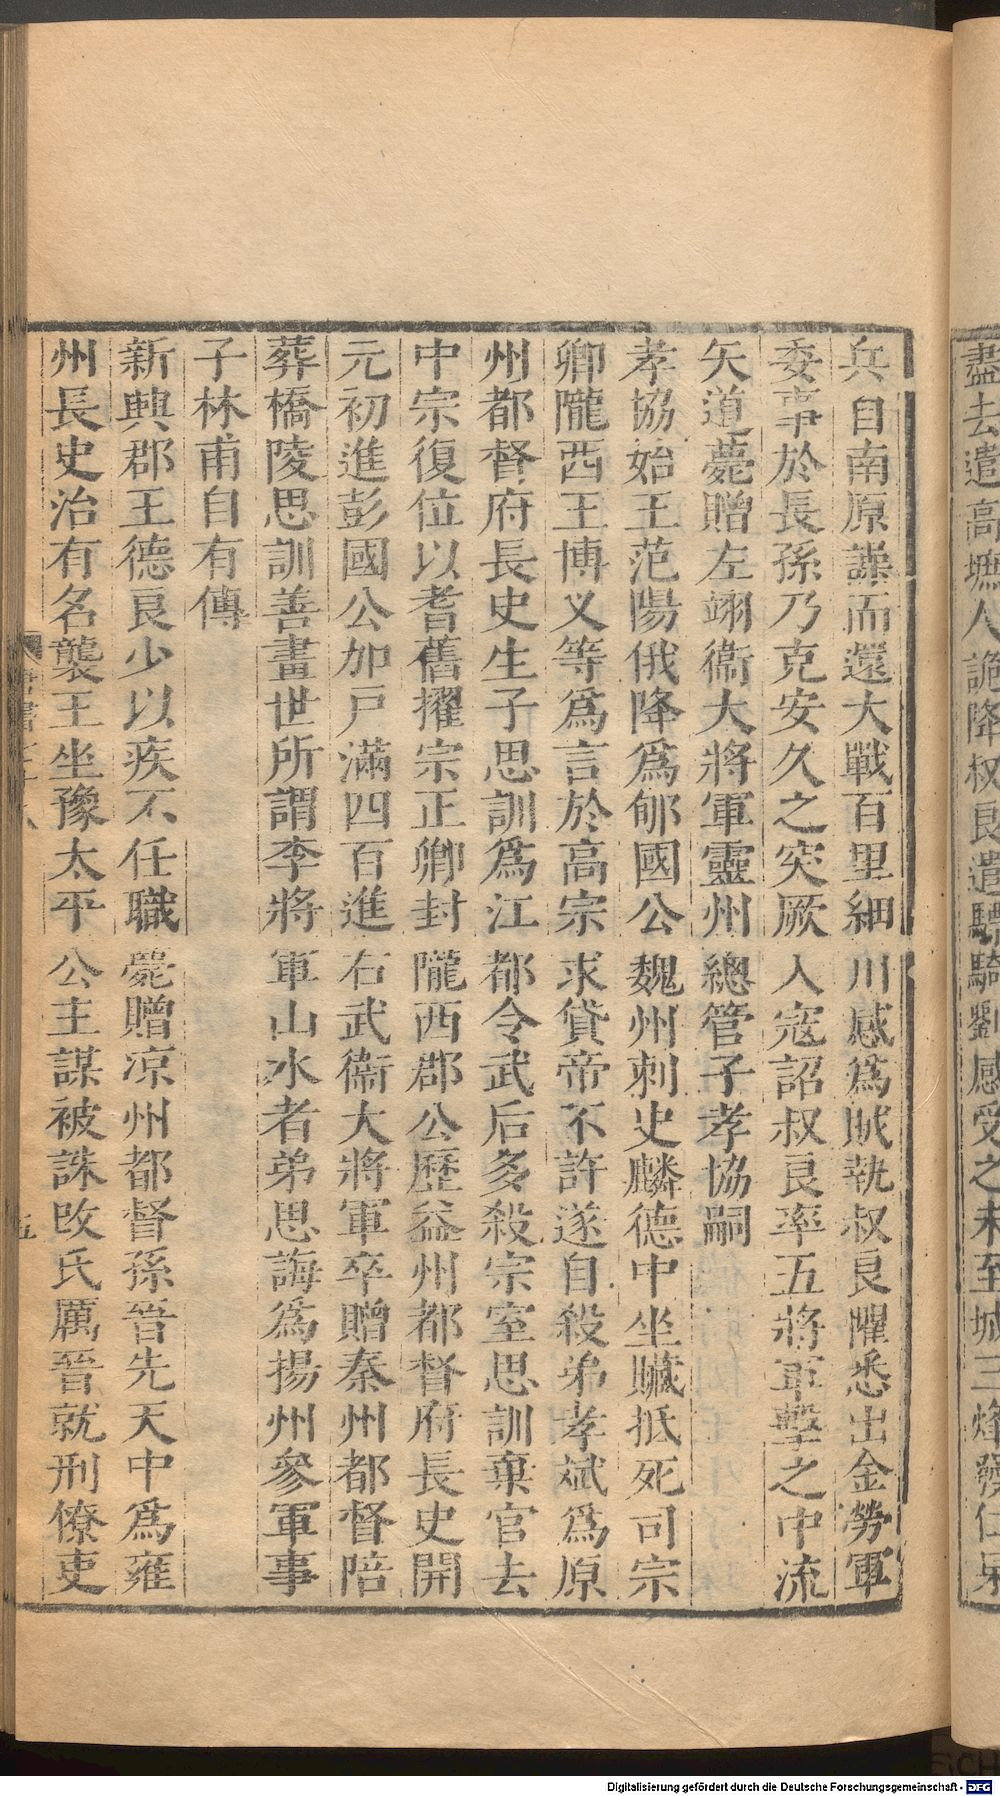 盡去遣高墌人詭降叔良遣驃騎劉感受之未至城三烽發仁杲
兵自南原譟而還大戰百里細川感爲賊執叔良懼悉出金勞軍
委事於長孫乃克安久之突厥入寇詔叔良率五將軍擊之中流
矢道薨贈左翊衞大將軍靈州總管子孝協嗣
孝協始王范陽俄降爲郇國公魏州刺史麟德中坐贓抵死司宗
卿隴西王博乂等爲言於高宗求貸帝不許遂自殺弟孝斌爲原
州都督府長史生子思訓爲江都令武后多殺宗室思訓棄官去
中宗復位以耆舊擢宗正卿封隴西郡公歷益州都督府長史開
元初進彭國公加戸滿四百進右武衞大將軍卒贈秦州都督陪
葬橋陵思訓善畫世所謂李將軍山水者弟思誨爲揚州參軍事
子林甫自有傳
新興郡王德良少以疾不任職薨贈凉州都督孫晉先天中爲雍
州長史治有名襲王坐豫太平公主謀被誅改氏厲晉就刑僚吏
五
Digitalisierung gefördert durch die Deutsche Forschungsgemeinschaft - DFG